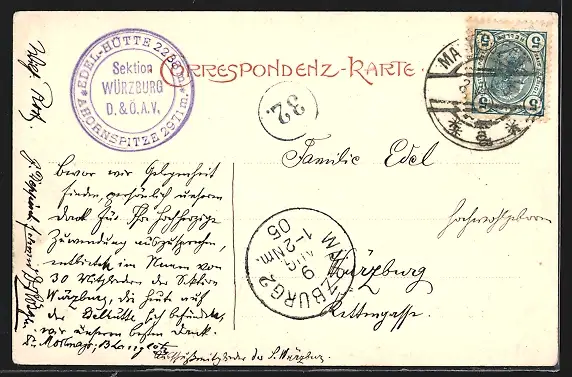 EDEL-HÜTTE 2238 m.
Sektion
WÜRZBURG
D. & Ö. A. V.
AHORNSPITZE 2971 m.
CORRESPONDENZ-KARTE.
5 5
HELLER
MA
32
Familie Edel
Hochwohlgeboren
Würzburg
Rittergasse.
WÜRZBURG 2
9
AUG
1-2 Nm.
05
Bevor wir Gelegenheit
finden, persönlich unseren
Dank für Ihre hochherzige
Zuwendung auszusprechen,
entbieten im Namen von
30 Mitglieder der Sektion
Würzburg, die heute auf
der Edelhütte sich befinden,
wir unseren besten Dank.
Ausschußmitglieder der S. Würzburg.